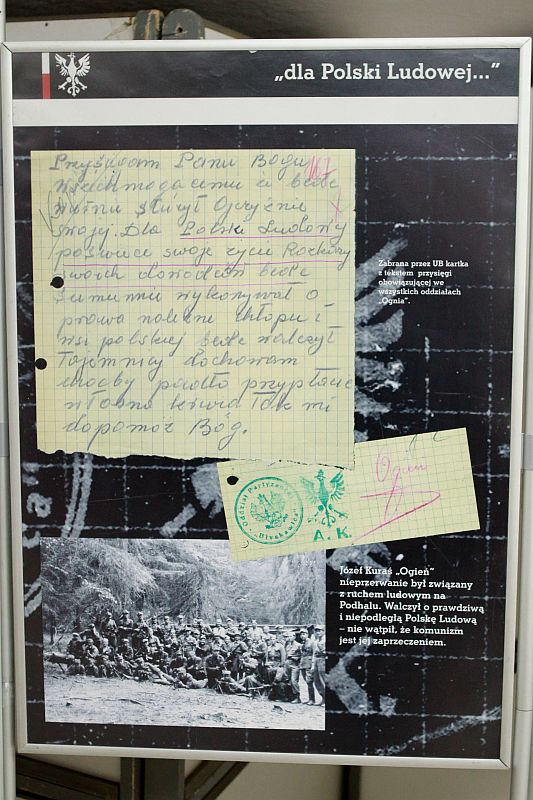 „dla Polski Ludowej...”
Przysięgam Panu Bogu
wszechmogącemu iż będę
wiernie służył Ojczyźnie
swojej. Dla Polski Ludowy
poświęce swoje życie Rozkazy
swoich dowódców będe
sumiennie wykonywał o
prawa należne chłopu i
wsi polskiej będe walczył
Tajemnicy dochowam
choćby miało przypłacić
własna krwią Tak mi
dopomóż Bóg.
Zabrana przez UB kartka
z tekstem przysięgi
obowiązującej we
wszystkich oddziałach
„Ognia”.
Ogień
Oddział Partyzancki
"Błyskawica"
A. K.
Józef Kuraś „Ogień”
nieprzerwanie był związany
z ruchem ludowym na
Podhalu. Walczył o prawdziwą
i niepodległą Polskę Ludową
– nie wątpił, że komunizm
jest jej zaprzeczeniem.